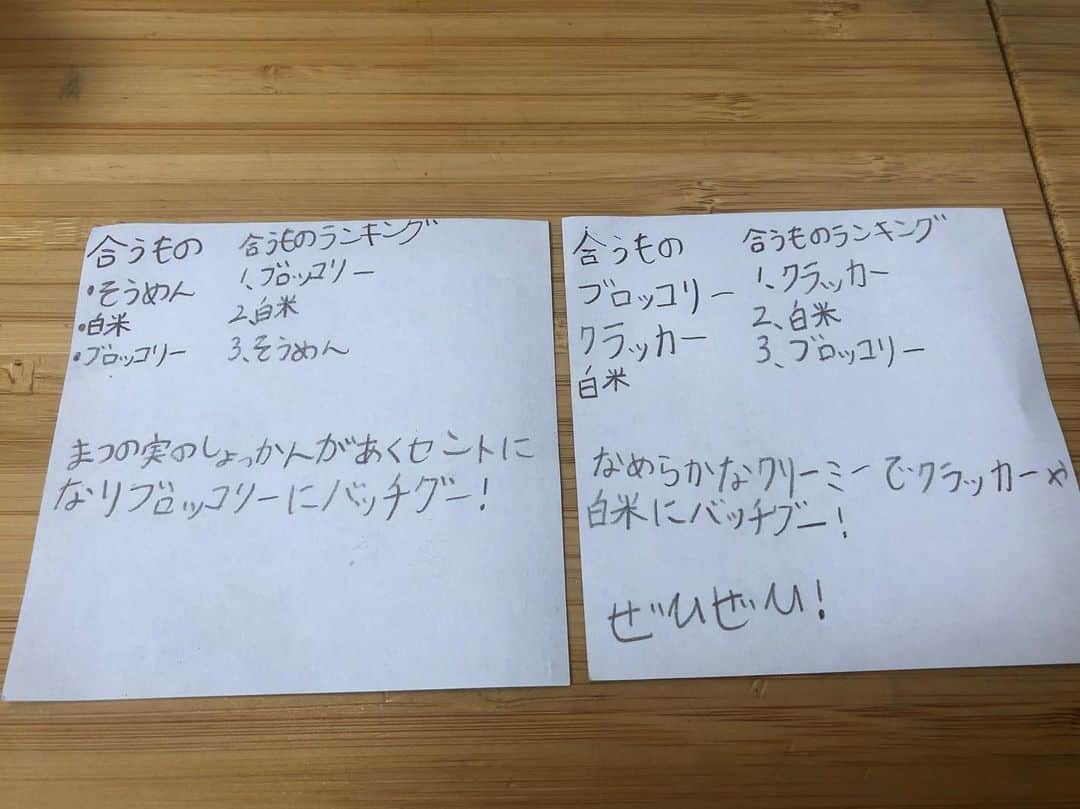 合うもの
・そうめん
・白米
・ブロッコリー
合うものランキング
1、ブロッコリー
2、白米
3、そうめん
まつの実のしょっかんがあくセントに
なりブロッコリーにバッチグー!
合うもの
ブロッコリー
クラッカー
白米
合うものランキング
1、クラッカー
2、白米
3、ブロッコリー
なめらかなクリーミーでクラッカーや
白米にバッチグー!
ぜひぜひ!